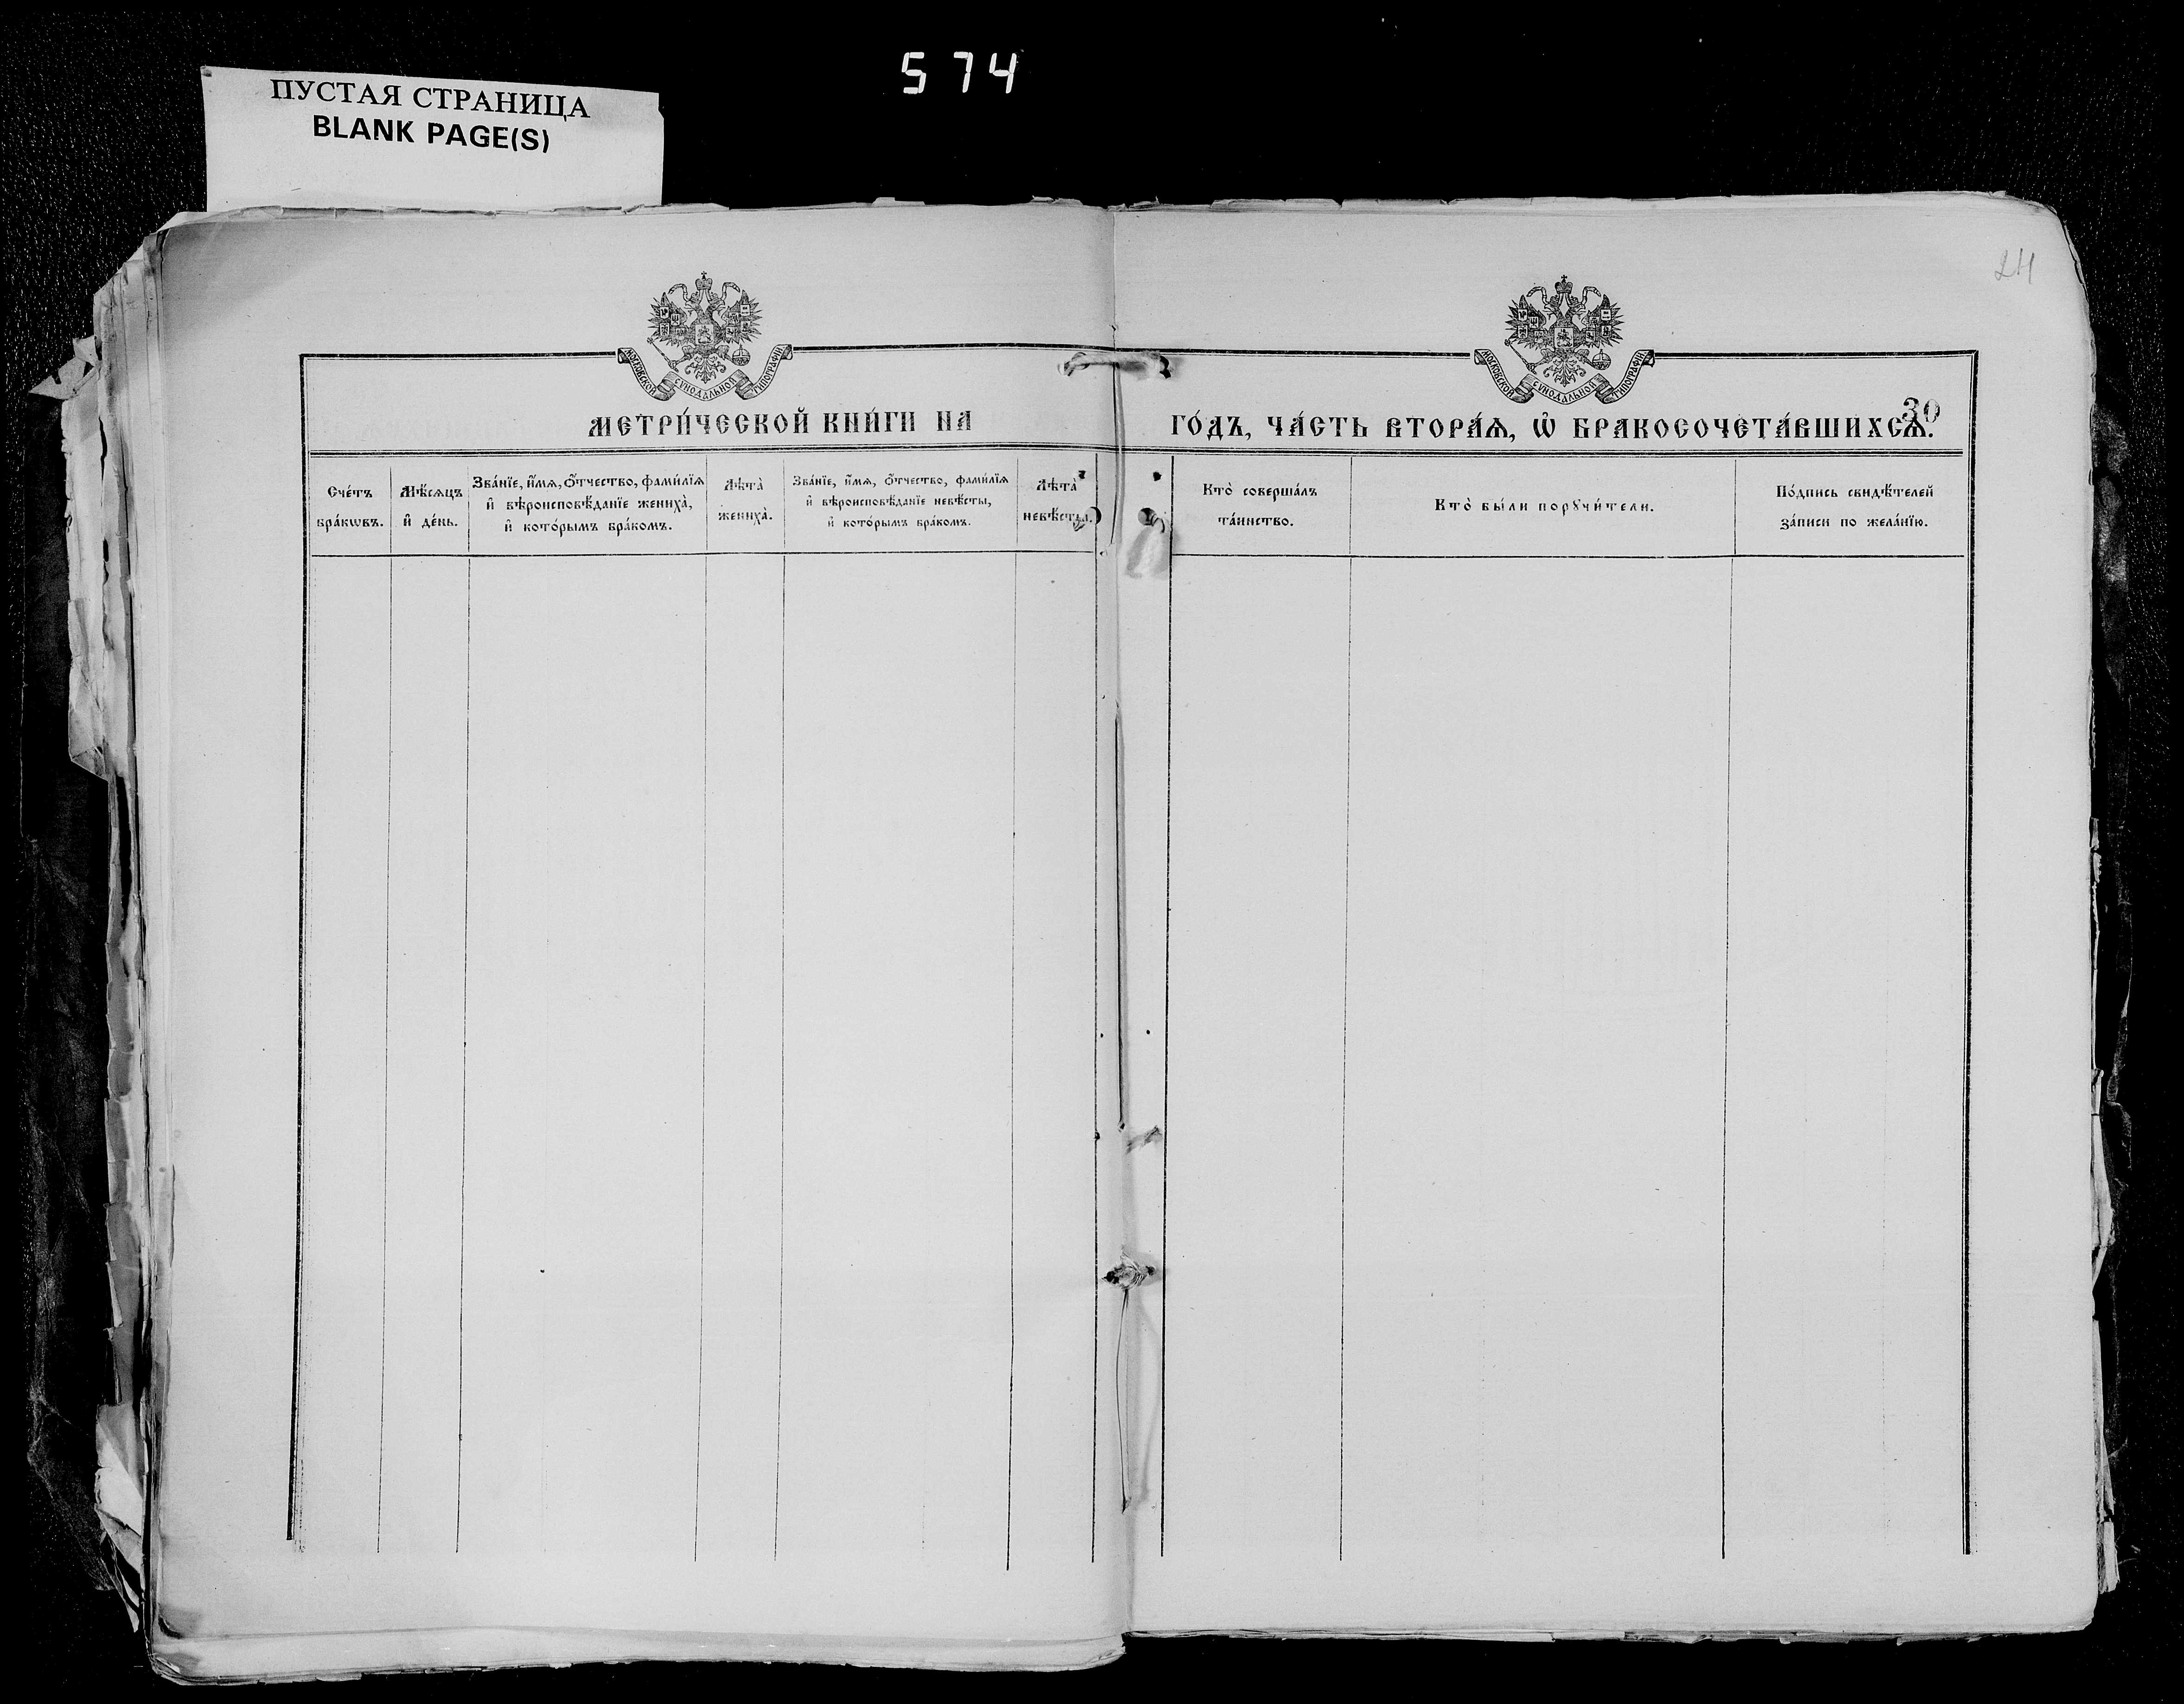 574
ПУСТАЯ СТРАНИЦА
BLANK PAGE(S)
24
МОСКОВСКОЙ СѴНОДАЛЬНОЙ ТИПОГРАФІИ
МОСКОВСКОЙ СѴНОДАЛЬНОЙ ТИПОГРАФІИ
30
МЕТРИ́ЧЕСКОЙ КНИ́ГИ НА ГО́ДЪ, ЧА́СТЬ ВТОРА́Ѧ, Ѽ БРАКОСОЧЕТА́ВШИХСѦ.
Сче́тъ
бра́кѡвъ.
Мѣ́сѧцъ
и҆ де́нь.
Зва́нїе, и҆́мѧ, ѻ҆́тчество, фами́лїѧ
и҆ вѣроисповѣ́данїе жениха̀,
и҆ кото́рымъ бра́комъ.
Лѣта̀
жениха̀.
Зва́нїе, и҆́мѧ, ѻ҆́тчество, фами́лїѧ
и҆ вѣроисповѣ́данїе невѣ́сты,
и҆ кото́рымъ бра́комъ.
Лѣта̀
невѣ́сты.
Кто̀ соверша́лъ
та́инство.
Кто̀ бы́ли порꙋчи́тели.
По́дпись свидѣ́телей
за́писи по жела́нїю.